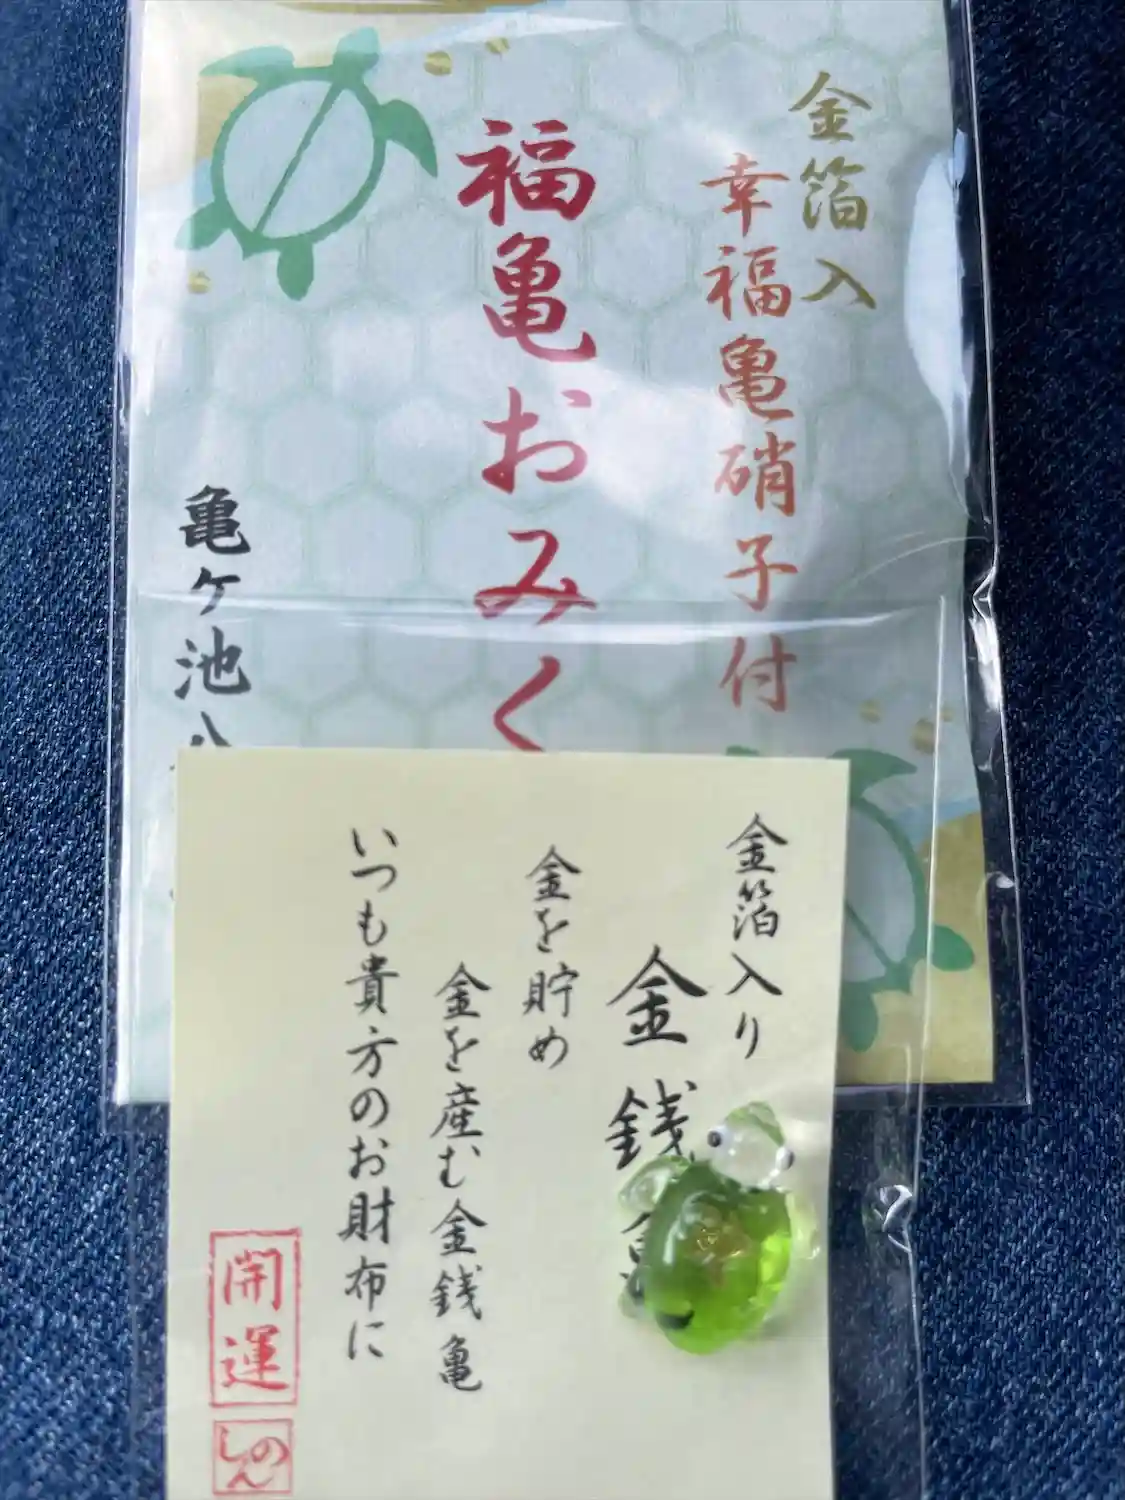 金箔入
幸福亀硝子付
福亀おみく
亀ヶ池八
金箔入り
金銭
金を貯め
金を産む金銭亀
いつも貴方のお財布に
開運
しのん